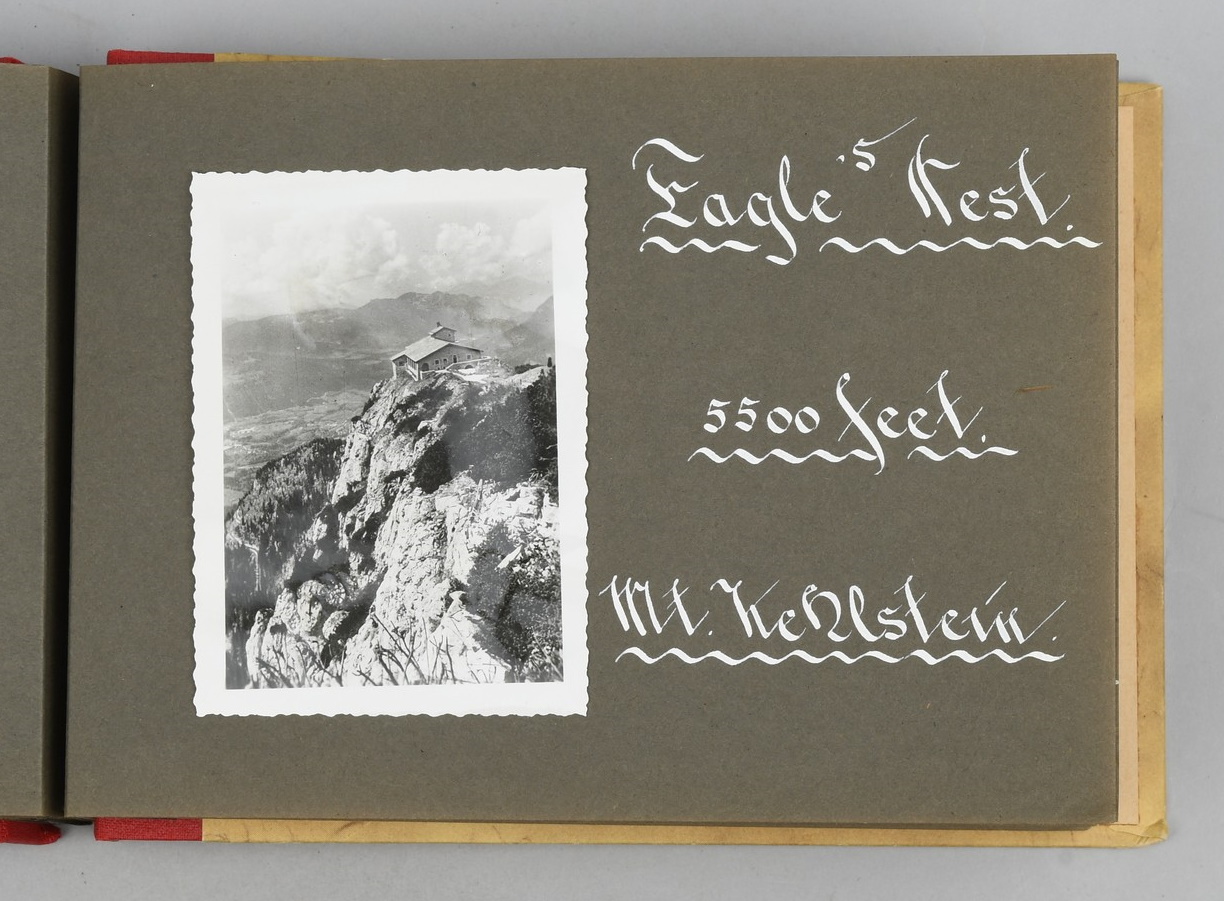 Eagle's Nest.
5500 feet.
Mt. Kehlstein.